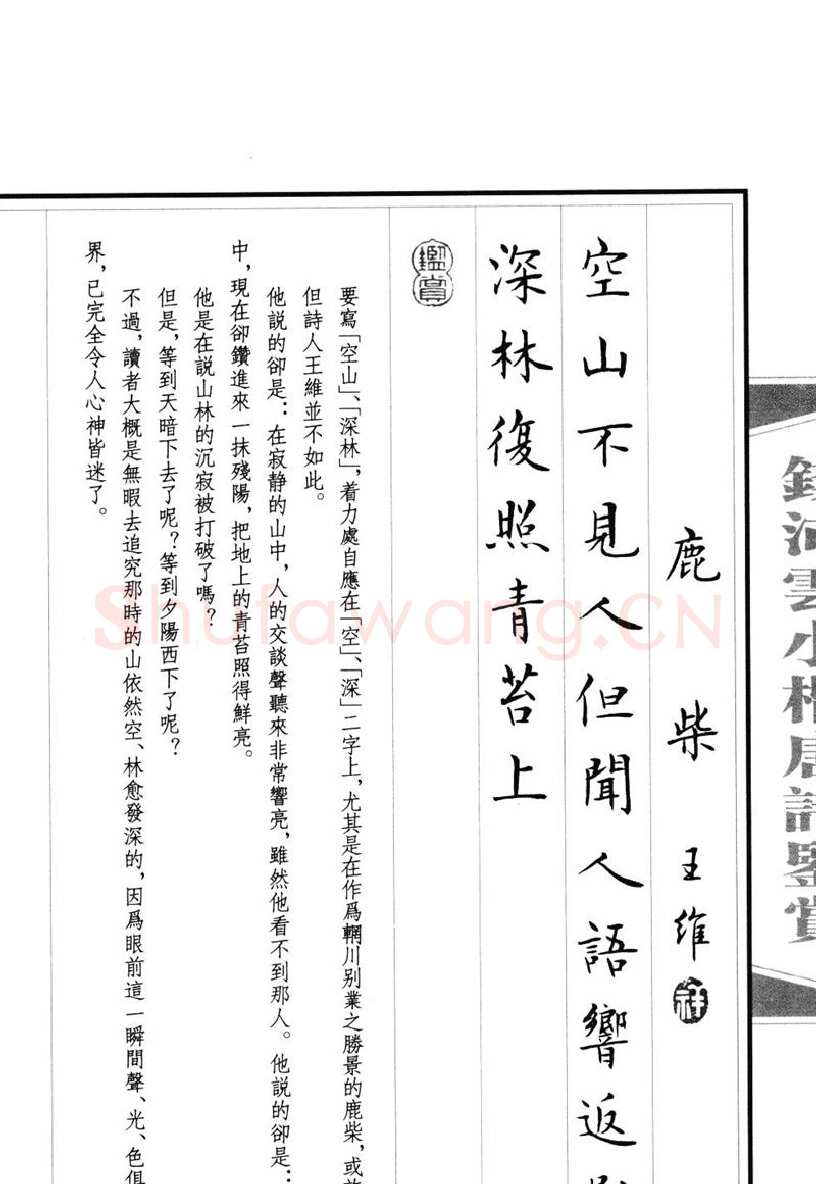 鹿柴 王維
空山不見人但聞人語響返
深林復照青苔上
鑑賞
要寫「空山」、「深林」，着力處自應在「空」、「深」二字上，尤其是在作爲輞川別業之勝景的鹿柴，或
但詩人王維並不如此。
他説的卻是：在寂静的山中，人的交談聲聽來非常響亮，雖然他看不到那人。他説的卻是：
中，現在卻鑽進來一抹殘陽，把地上的青苔照得鮮亮。
他是在説山林的沉寂被打破了嗎？
但是，等到天暗下去了呢？等到夕陽西下了呢？
不過，讀者大概是無暇去追究那時的山依然空、林愈發深的，因爲眼前這一瞬間聲、光、色俱
界，已完全令人心神皆迷了。
河雲小楷唐詩鑒賞
Shufawang.CN